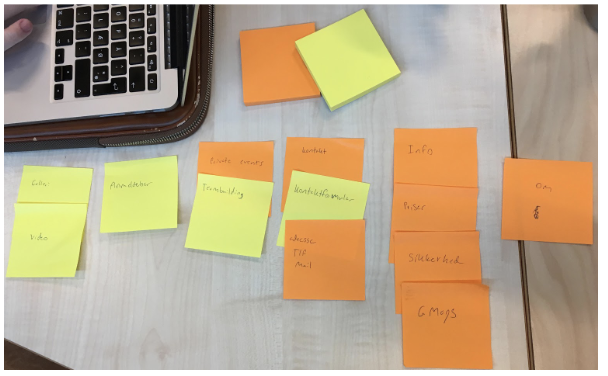 Video
Anmeldelser
events
Teambuilding
kontakt
kontaktformular
adresse
TLF
Mail
Info
Priser
Sikkerhed
G Maps
Om